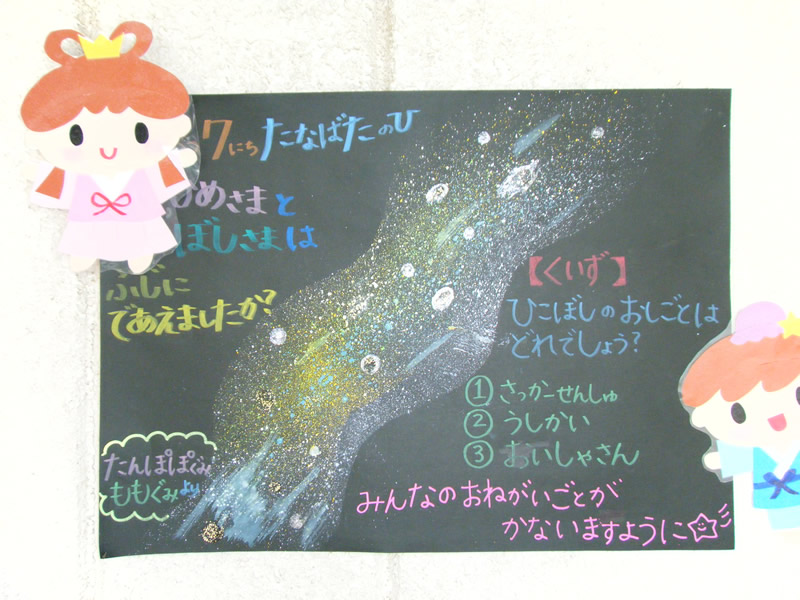 7にち たなばたのひ
ひめさまと
ぼしさまは
ぶじに
であえましたか?
【くいず】
ひこぼしのおしごとは
どれでしょう?
① さっかーせんしゅ
② うしかい
③ おいしゃさん
たんぽぽぐみ
ももぐみより
みんなのおねがいごとが
かないますように☆